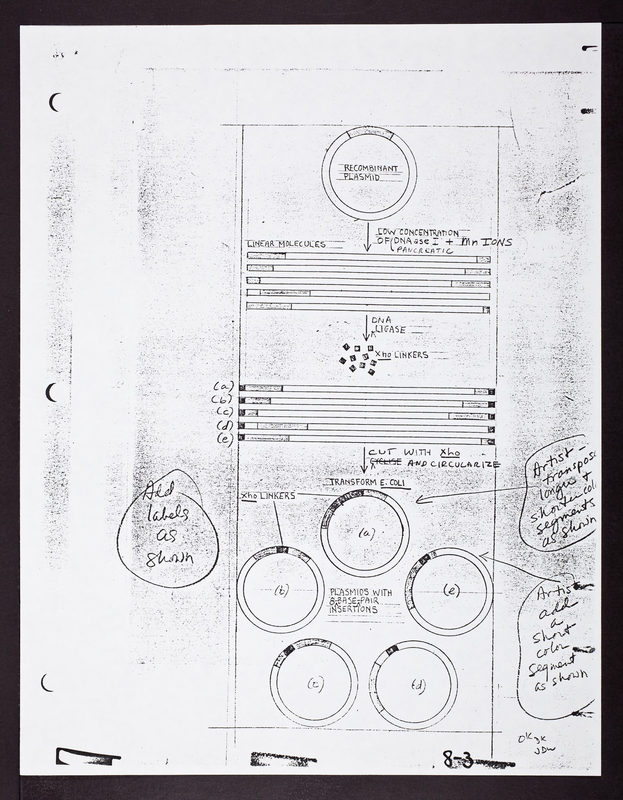 RECOMBINANT
PLASMID
LOW CONCENTRATION
OF DNAase I + Mn IONS
PANCREATIC
LINEAR MOLECULES
DNA
LIGASE
Xho LINKERS
(a)
(b)
(c)
(d)
(e)
CUT WITH Xho
CYCLISE AND CIRCULARIZE
TRANSFORM E. COLI
Xho LINKERS
(a)
(b)
(e)
PLASMIDS WITH
BASE-PAIR
INSERTIONS
(c)
(d)
Add
labels
as
shown
Artist -
transpose
longer +
shorter
segments
as shown
Artist
add
a
short
color
segment
as shown
OK
JDW
8-3